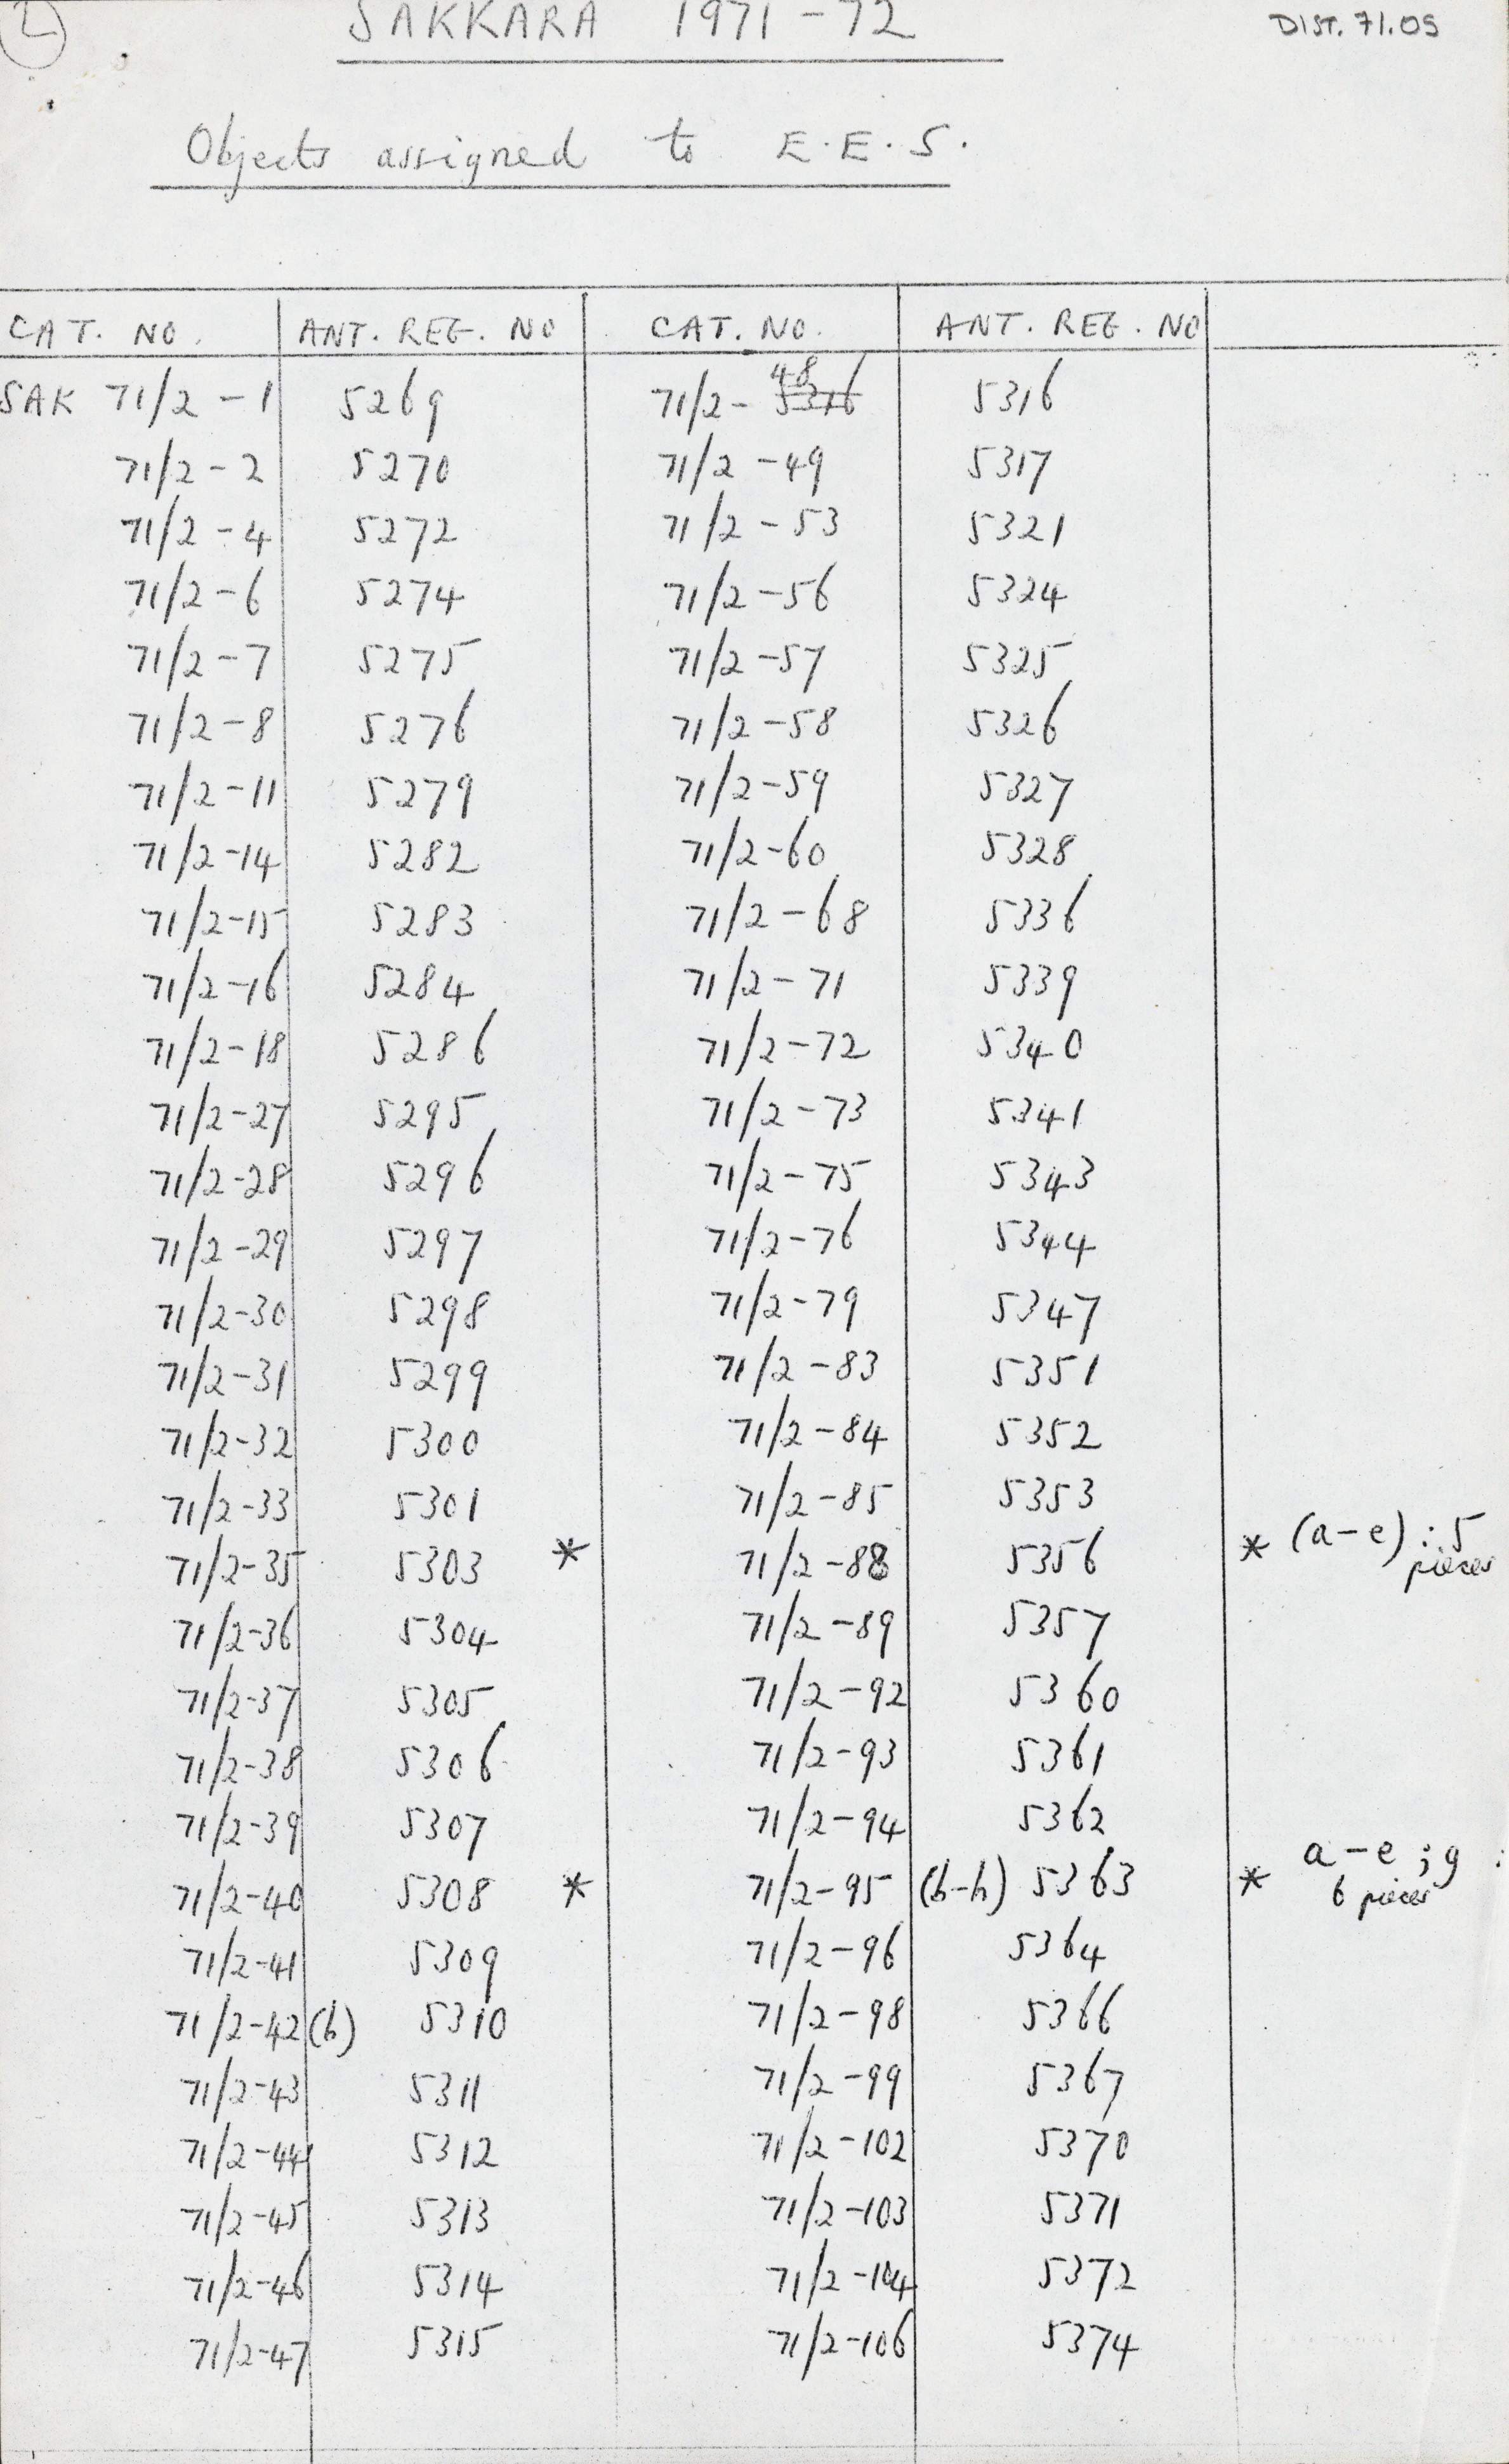 2
SAKKARA 1971-72
DIST. 71.05
Objects assigned to E.E.S.
CAT. NO. ANT. REG. NO CAT. NO. ANT. REG. NO
48
SAK 71/2-1 5269 71/2-5316 5316
71/2-2 5270 71/2-49 5317
71/2-4 5272 71/2-53 5321
71/2-6 5274 71/2-56 5324
71/2-7 5275 71/2-57 5325
71/2-8 5276 71/2-58 5326
71/2-11 5279 71/2-59 5327
71/2-14 5282 71/2-60 5328
71/2-15 5283 71/2-68 5336
71/2-16 5284 71/2-71 5339
71/2-18 5286 71/2-72 5340
71/2-27 5295 71/2-73 5341
71/2-28 5296 71/2-75 5343
71/2-29 5297 71/2-76 5344
71/2-30 5298 71/2-79 5347
71/2-31 5299 71/2-83 5351
71/2-32 5300 71/2-84 5352
71/2-33 5301 71/2-85 5353
71/2-35 5303 * 71/2-88 5356 * (a-e) : 5
pieces
71/2-36 5304 71/2-89 5357
71/2-37 5305 71/2-92 5360
71/2-38 5306 71/2-93 5361
71/2-39 5307 71/2-94 5362
71/2-40 5308 * 71/2-95 (b-h) 5363 * a-e ; g :
6 pieces
71/2-41 5309 71/2-96 5364
71/2-42(b) 5310 71/2-98 5366
71/2-43 5311 71/2-99 5367
71/2-44 5312 71/2-102 5370
71/2-45 5313 71/2-103 5371
71/2-46 5314 71/2-104 5372
71/2-47 5315 71/2-106 5374